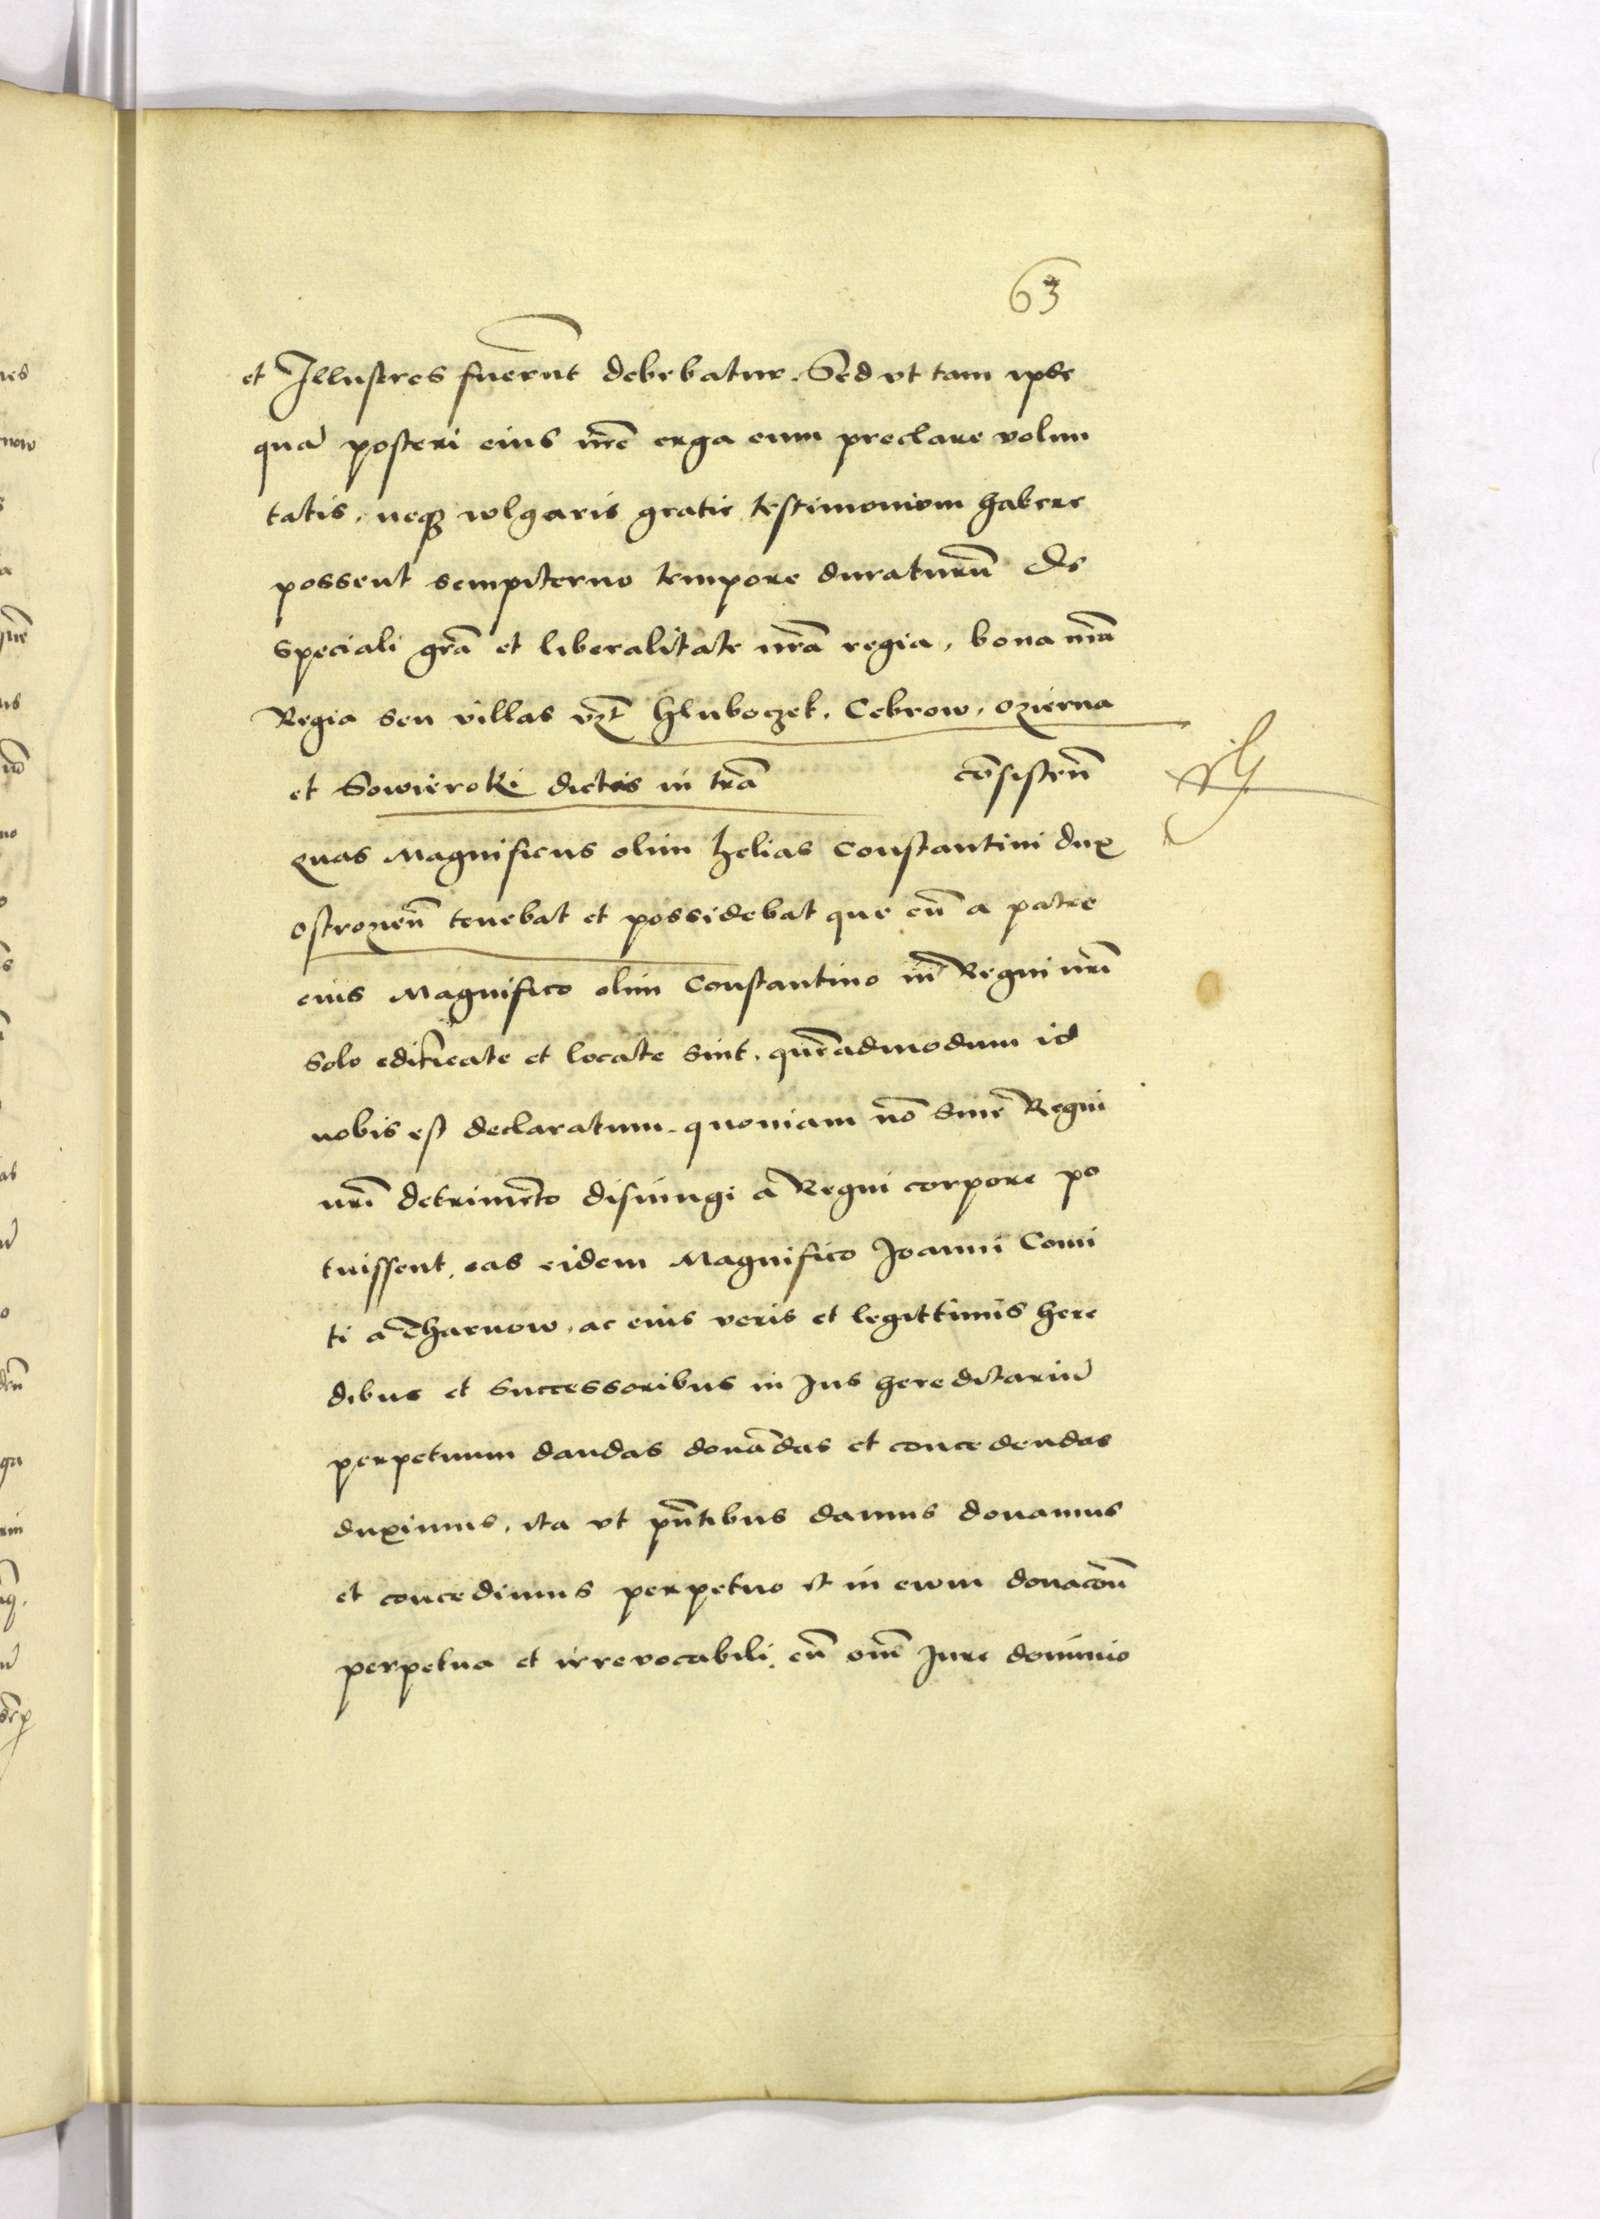 63
et Illustres fuerũt debebatur. Sed vt tam ipse
quã posteri eius nr̃e erga eum preclare volun
tatis, neqꝫ wlgaris gratie testimonium habere
possent sempiterno tempore duraturũ de
speciali gr̃a et liberalitate nr̃a regia, bona nr̃a
Regia seu villas vꝫt Hluboczek, Cebrow, Ozierna
et Sowieroki dictas in tr̃a consisteñ
quas Magnificus olim Helias Constantini dux
Ostrozeñ tenebat et possidebat que cũ a patre
eius Magnifico olim Constantino in Regni nr̃i
solo edificate et locate sint, quẽadmodum id
nobis est declaratum, quoniam nõ sine Regni
nr̃i detrimẽto disiungi a Regni corpore po
tuissent, eas eidem Magnifico Joanni Comi
ti a Tharnow, ac eius veris et legittimis here
dibus et Successoribus in Jus hereditariũ
perpetuum dandas donãdas et concedendas
duximus, ita vt pñtibus damus donamus
et concedimus perpetuo et in ewm donacõñ
perpetua et irrevocabili, cũ om̃i Jure dominio